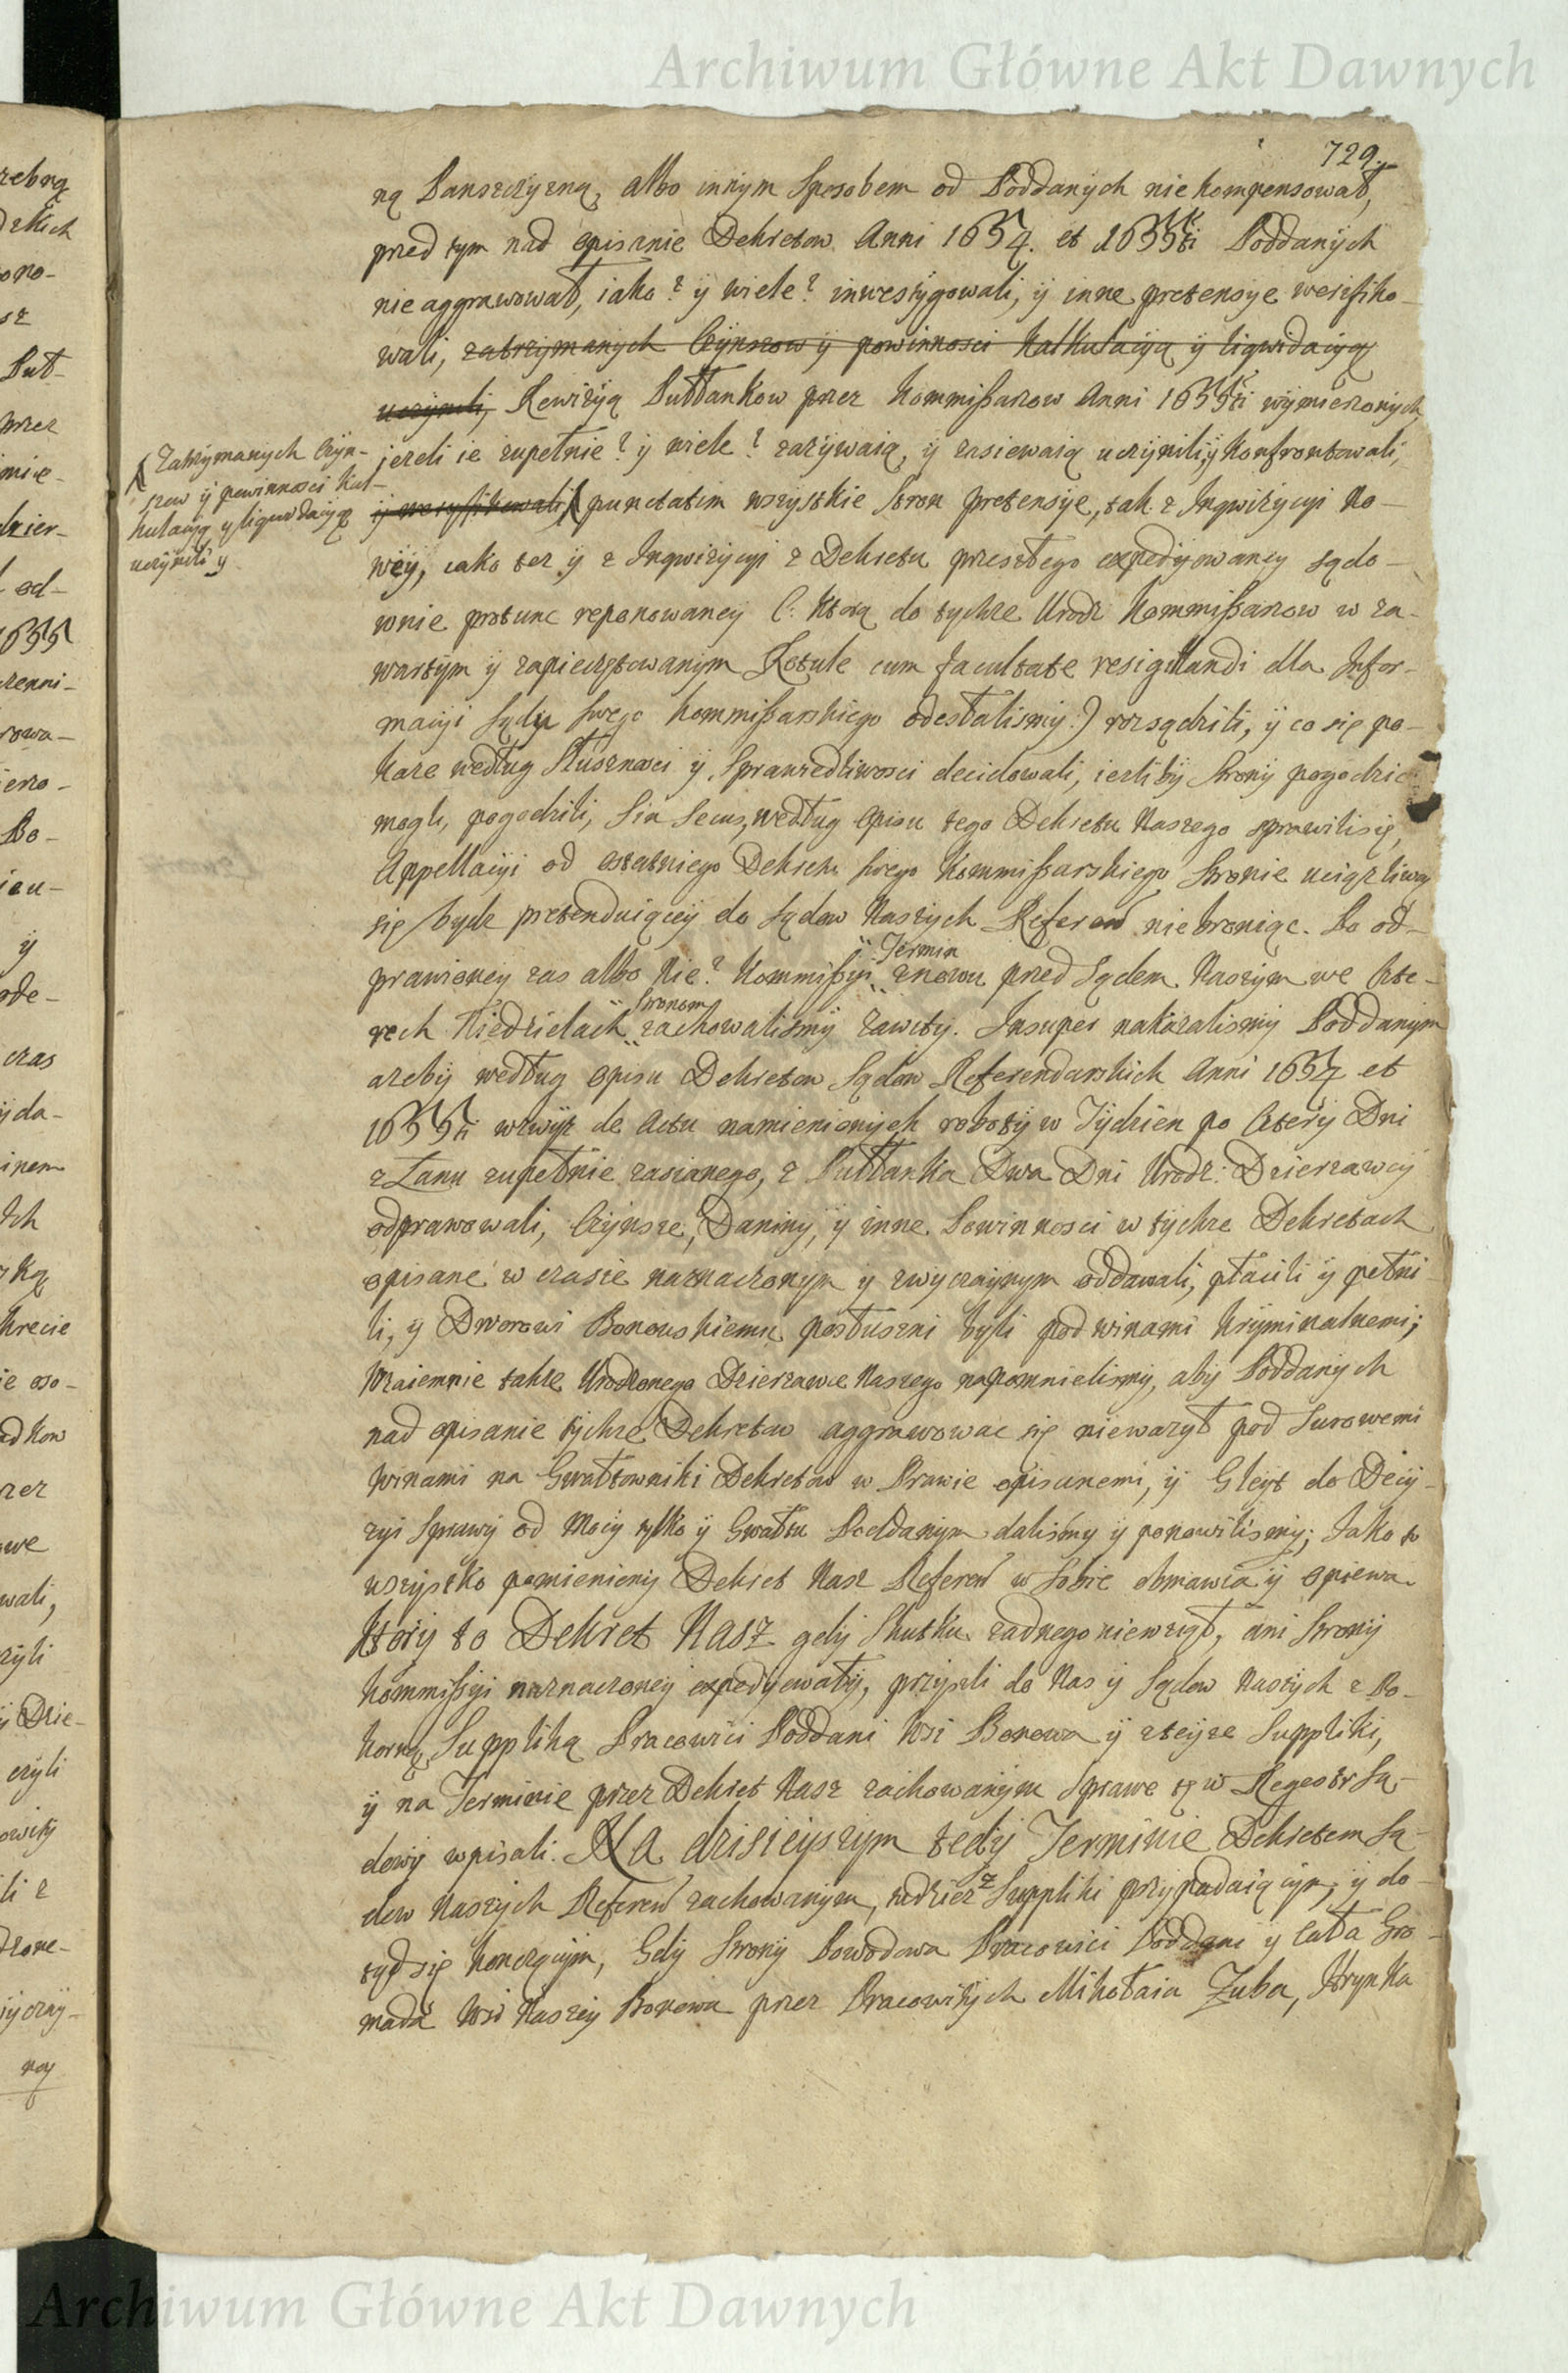 Archiwum Główne Akt Dawnych
729.
ną Panszczyzną, albo innym Sposobem od Poddanych niekompensował,
przed tym nad opisanie Dekretow Anni 1654. et 1655ti Poddanych
nie aggrawował, iako? ÿ wiele? inwestygowali, ÿ inne pretensye werifiko-
wali, zatrzymanych Czynszow ÿ powinnosci Kalkulacyą ÿ liqwidacyą
uczynili, Rewizyą Pułłankow przez Kommißarzow Anni 1655ti wymierzonych
jezeli ie zupełnie? ÿ wiele? zazywaią, ÿ zasiewaią uczynili, ÿ Konfrontowali,
Zatrzymanych Czyn-
szow ÿ powinnosci Kal-
kulacyą y liqwidacyą
uczynili y
ÿ weryfikowali punctatim wszystkie Stron pretensye, tak z Inqwizycyi No-
wey, iako tez ÿ z Inqwizycyi z Dekretu przeszłego expedyowaney sądo-
wnie protunc reponowaney (: Ktorą do tychze Urodz Kommißarzow w za-
wartym ÿ zapieczętowanym Rotule cum facultate resigillandi dla Infor-
macyi Sądu Swego Kommißarskiego odesłalismy:) rozsądzili, ÿ co się po-
kaze według Słusznosci ÿ Sprawiedliwosci decidowali, ieźliby Strony pogodzic
mogli, pogodzili, Sin Secus, według opisu tego Dekretu Naszego sprawili się,
Appellacyi od ostatniego Dekretu swego Kommißarskiego Stronie uciązliwą
się bydz pretenduiącey do Sądow Naszych Referen niebroniąc. Po od-
prawioney zas albo nie? Kommißyi Termin znowu przed Sądem Naszym we Czte-
rech Niedzielach Stronom zachowalismy zawity. Insuper nakazalismy Poddanym
azeby według opisu Dekretow Sądow Referendarskich Anni 1654 et
1655ti wzwyz de Actu namienionych roboty w Tydzien po Cztery Dni
z Łanu zupełnie zasianego, z Pułłanka Dwa Dni Urodz: Dzierzawcy
odprawowali, Czynsze, Daniny, ÿ inne Powinnosci w tychze Dekretach
opisane w czasie naznaczonym ÿ zwyczaynym oddawali, płacili ÿ pełni-
li, ÿ Dworowi Bonowskiemu posłuszni byli pod winami Kryminalnemi;
Wzaiemnie takze Urodzonego Dzierzawce Naszego napomnielismy, aby Poddanych
nad opisanie tychze Dekretow aggrawowac się niewazył pod Surowemi
winami na Gwałtowniki Dekretow w Prawie opisanemi, ÿ Gleyt do Decy-
zyi Sprawy od Mocy tylko ÿ Gwałtu Poddanym dalismy ÿ ponowilismy; Jako to
wszystko pomieniony Dekret Nasz Referen w Sobie obmawia ÿ opiewa.
Ktory to Dekret Nasz gdy Skutku zadnego niewziął, ani Strony
Kommißyi naznaczoney expedyowały, przyszli do Nas ÿ Sądow Naszych z Po-
korną Suppliką Pracowici Poddani Wsi Bonowa ÿ zteyze Suppliki,
ÿ na Terminie przez Dekret Nasz zachowanym Sprawe tę w Regestr Są-
dowy wpisali. Na dzisieyszym tedy Terminie Dekretem Są-
dow Naszych Referen zachowanym, tudziez z Suppliki przypadaiącym, ÿ do-
tąd się konczącym, Gdy Strony Powodowa Pracowici Poddani y Cała Gro-
mada Wsi Naszey Bonowa przez Pracowitych Mikołaia Zuba, Hrynka
Archiwum Główne Akt Dawnych